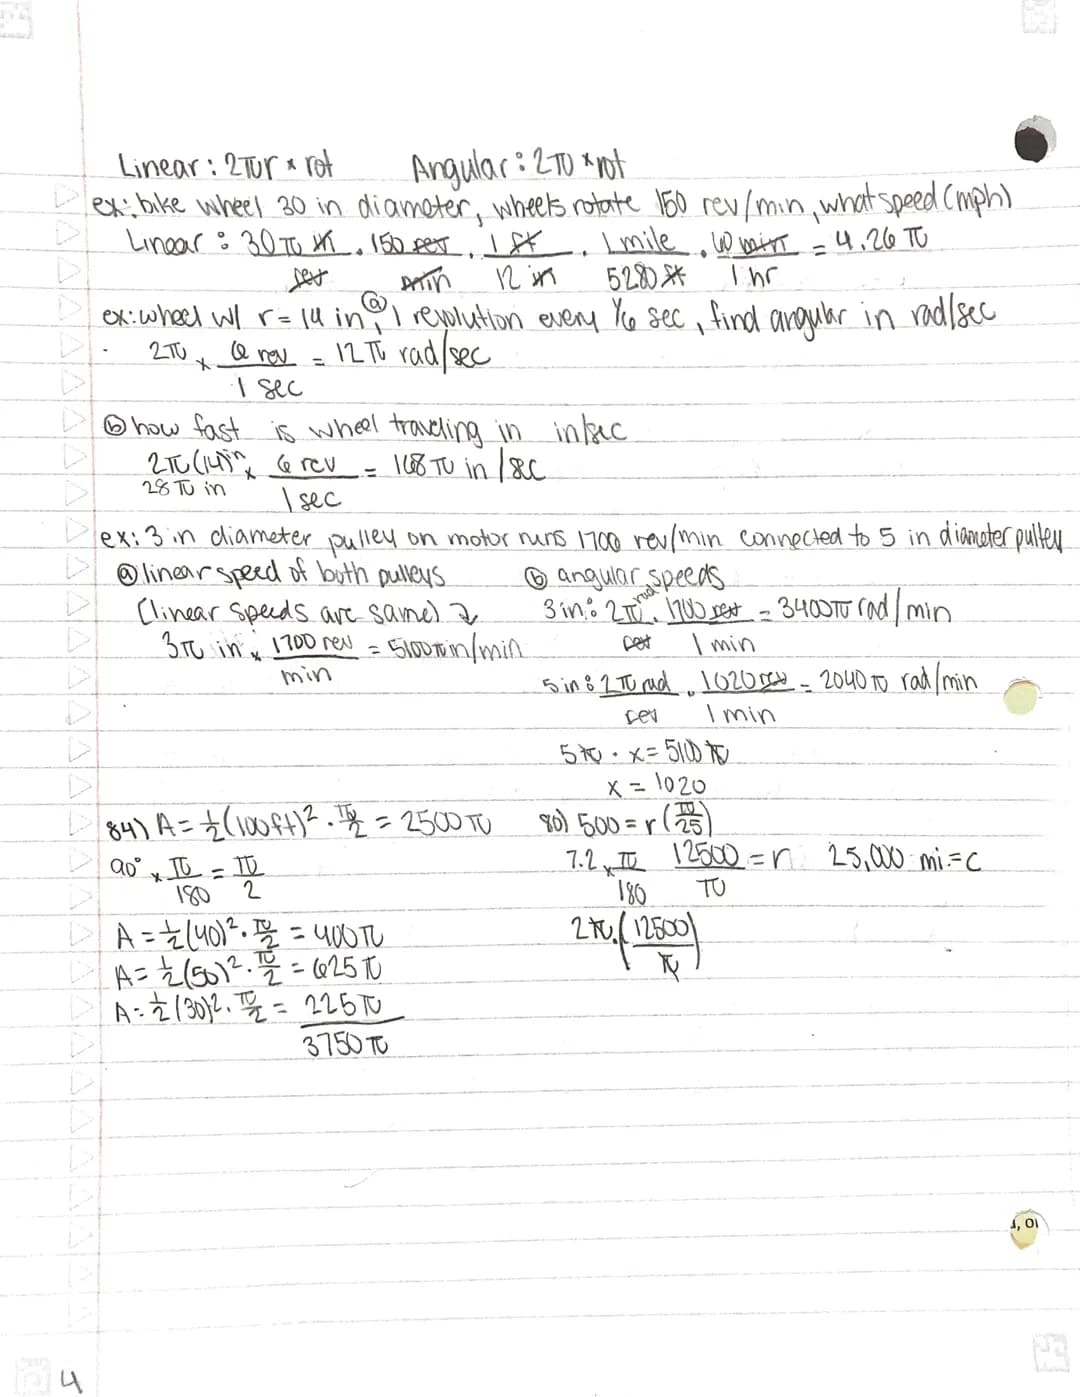 Linear : 2πr × rot Angular : 2π × rot
ex: bike wheel 30 in diameter, wheels rotate 150 rev/min, what speed (mph)
Linear : 30π in/rev · 150 rev/min · 1 ft/12 in · 1 mile/5280 ft · 60 min/1 hr = 4.26 π
ex: wheel w/ r = 14 in, ⓐ 1 revolution every 1/6 sec, find angular in rad/sec
2π × 6 rev/1 sec = 12π rad/sec
ⓑ how fast is wheel traveling in in/sec
2π(14)in × 6 rev/1 sec = 168 π in/sec
28 π in
ex: 3 in diameter pulley on motor runs 1700 rev/min connected to 5 in diameter pulley
ⓐ linear speed of both pulleys
(linear speeds are same)
3π in × 1700 rev/min = 5100π in/min
ⓑ angular speeds
3 in: 2π rad/rev · 1700 rev/1 min = 3400π rad/min
5 in: 2π rad/rev · 1020 rev/1 min = 2040π rad/min
5π · x = 5100 π
x = 1020
84) A = 1/2(100ft)² · π/2 = 2500π
90° × π/180 = π/2
A = 1/2(40)² · π/2 = 400π
A = 1/2(50)² · π/2 = 625π
A = 1/2(30)² · π/2 = 225π
3750π
80) 500 = r(π/25)
7.2 × π/180 12500/π = r 25,000 mi = c
2π · (12500/π)
4